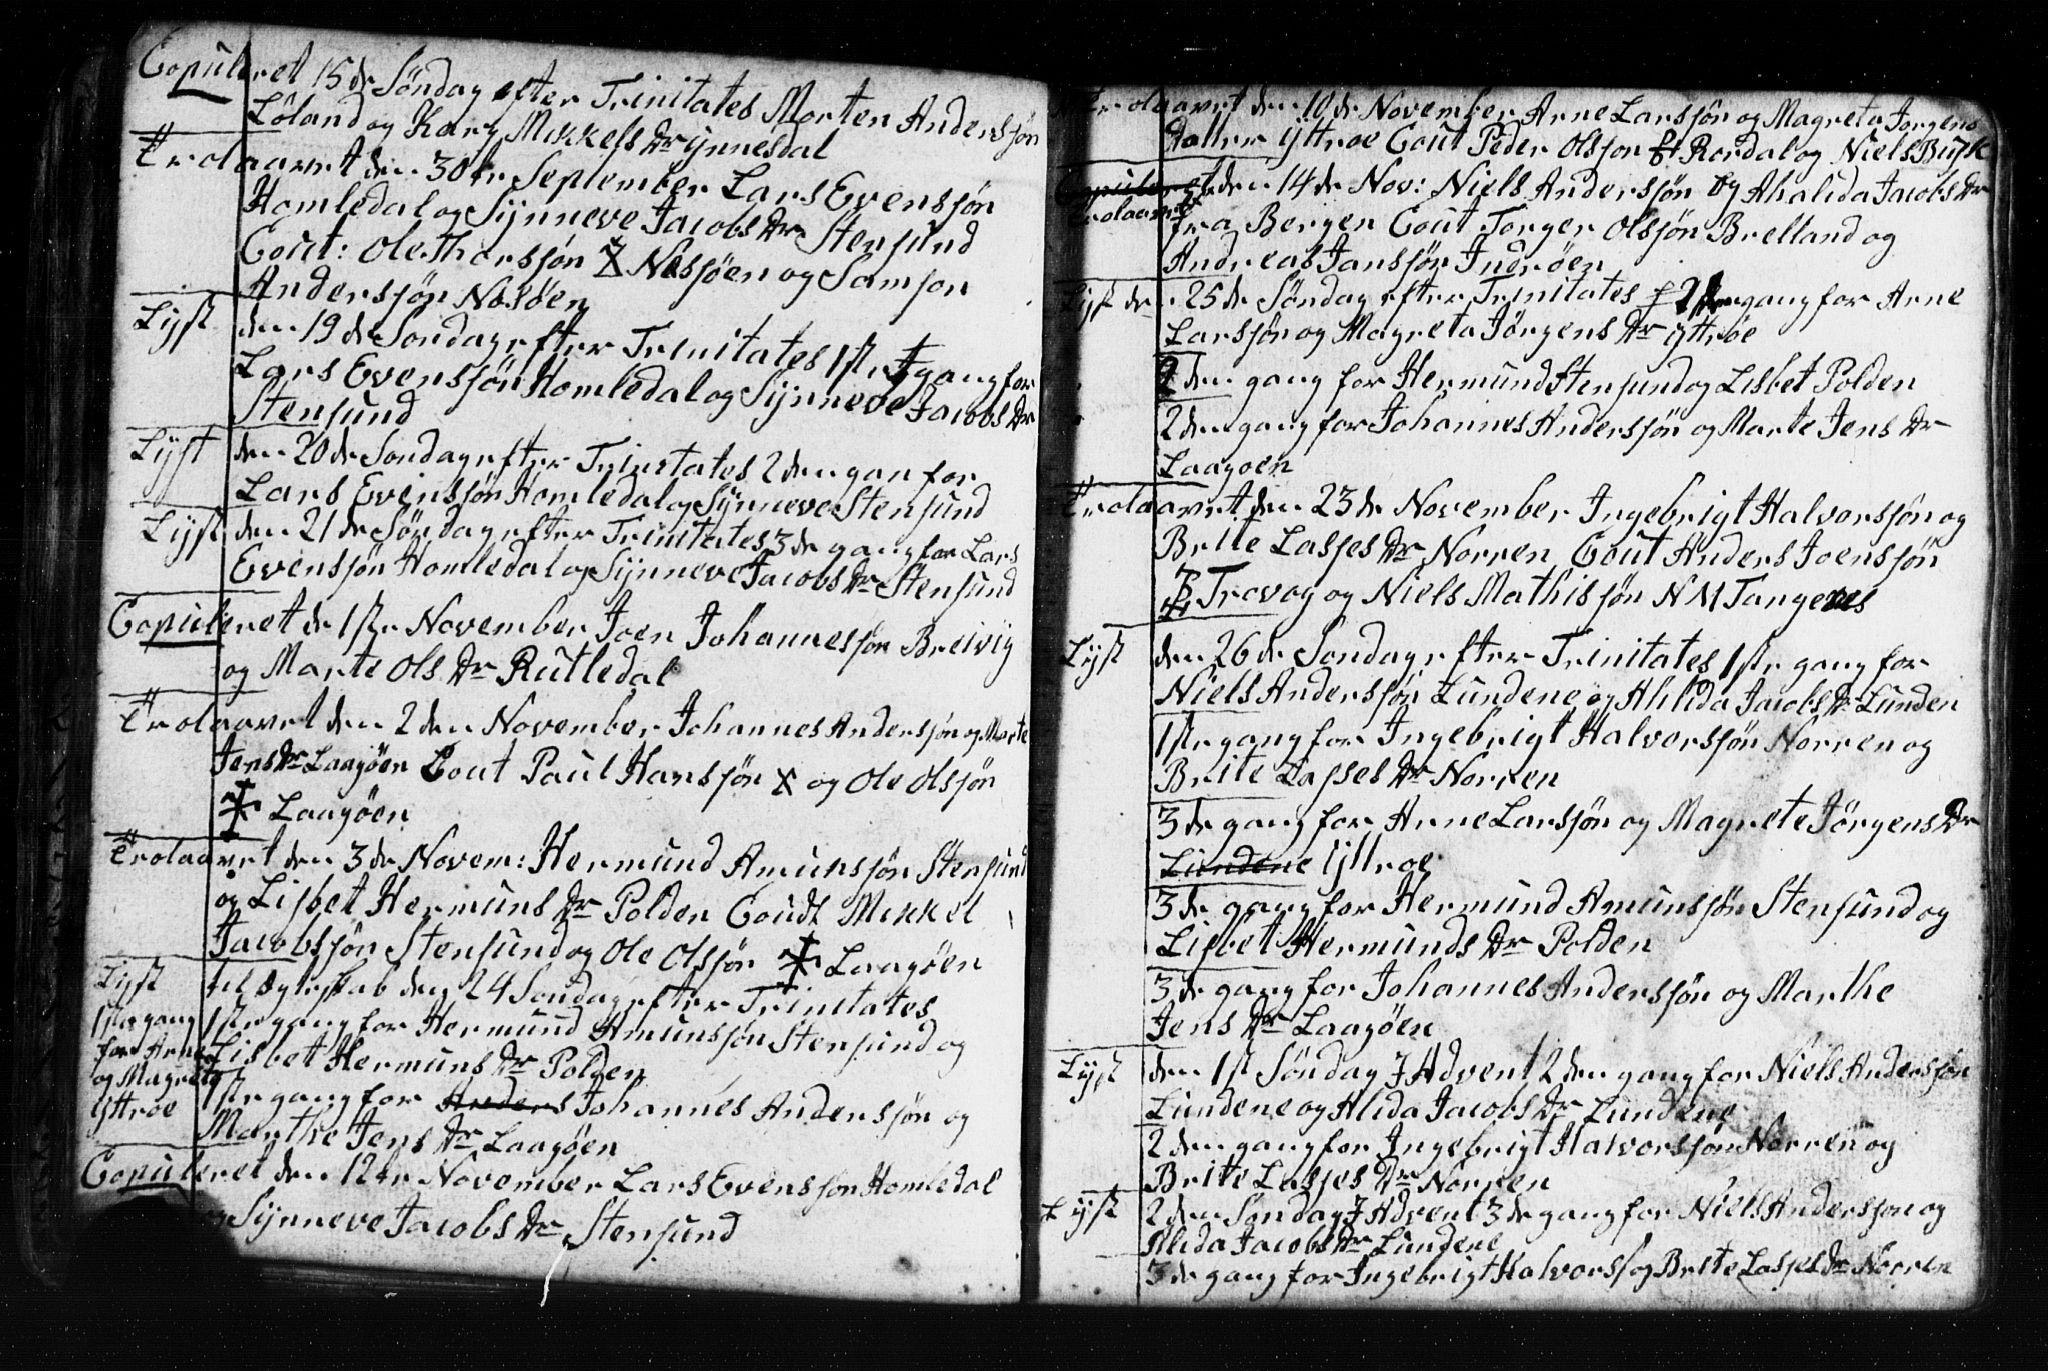 Copuleret 15de Søndag efter Trinitates Morten Andersjøn
Löland og Kary Mikkels Dr ÿnnesdal
Trolaavet den 30te September Lars Evensjøn
Homledal og Sÿnneve Jacobs Dr Stensund
Cout: Ole Thorsjøn Nesjøen og Samson
Andersjøn Nosøen
Lÿst den 19de Søndag efter Trinitates 1ste gang for
Lars Evensjøn Homledal og Sÿnneve Jacobs Dr
Stensund
Lÿst den 20de Søndag efter Trinitates 2den gan for
Lars Evensjøn Homledal og Sÿnneve Stensund
Lÿst den 21de Søndag efter Trinitates 3de gang for Lars
Evensjøn Homledal og Sÿnneve Jacobs Dr Stensund
Copuleret de 1ste November Joen Johannesjøn Breivig
og Marte Ols Dr Rutledal
Trolaavet den 2den November Johannes Andersjøn og Marte
Jens Dr Laagøen Cout Paul Hansjøn og Ole Olsjøn
Laagøen
Trolaavet den 3de Novem: Hermund Amunsjøn Stensund
og Lisbet Hermuns Dr Polden Coudt Mikkel
Jacobsjøn Stensund og Ole Olsjøn Laagøen
Lÿst til Ægteskab den 24 Søndag efter Trinitates
1ste gang for Hermund Amunsjøn Stensund og
Lisbet Hermuns Dr Polden
1ste gang
for Arne
og Magrete
ÿttroe
1ste gang for Anders Johannes Andersjøn og
Marthe Jens Dr Laagøen
Copuleret den 12te November Lars Evensjøn Homledal
og Sÿnneve Jacobs Dr Stensund
Trolaavet den 10de November Arne Larsjøn og Magreta Jorgens
Datter ÿttroe Cout Peder Olsjon Rordal og Niels Busk
Copuleret
Trolaavet den 14de Nov: Niels Andersjøn og Ahalida Jacobs Dr
fra Bergen Cout Torger Olsjøn Brelland og
Andreas Jansjøn Indrøen
Lÿst den 25de Søndag efter Trinitates 2den gang for Arne
Larsjøn og Magreta Jörgens Dr ÿttröe
2den gang for Hermund Stensund og Lisbet Polden
2den gang for Johannes Andersjøn og Marte Jens Dr
Laagoen
Trolaavet den 23de November Ingebrigt Halvorsjøn og
Brite Lasses Dr Norren Cout Anders Joensjøn
Trovog og Niels Mathisjøn N M Tangenes
Lÿst den 26de Søndag efter Trinitates 1ste gang for
Niels Andersjøn Lundene og Ahlida Jacobs Dr Lunden
1ste gang for Ingebrigt Halvorsjøn Norren og
Brite Lasses Dr Norren
3de gang for Arne Larsjøn og Magrete Jörgens Dr
Lundene ÿttroe
3de gang for Hermund Amunsjøn Stensund og
Lisbet Hermunds Dr Polden
3de gang for Johannes Andersjøn og Marthe
Jens Dr Laagøen
Lÿst den 1ste Søndag J Advent 2den gang for Niels Andersjøn
Lundene og Alida Jacobs Dr Lundene
2den gang for Ingebrigt Halvorsjøn Norren og
Brite Lasses Dr Norren
Lÿst 2den Søndag J Advent 3de gang for Niels Andersjon og
Alida Jacobs Dr Lundene
3de gang for Ingebrigt Halvorsj og Brite Lasses Dr Norren